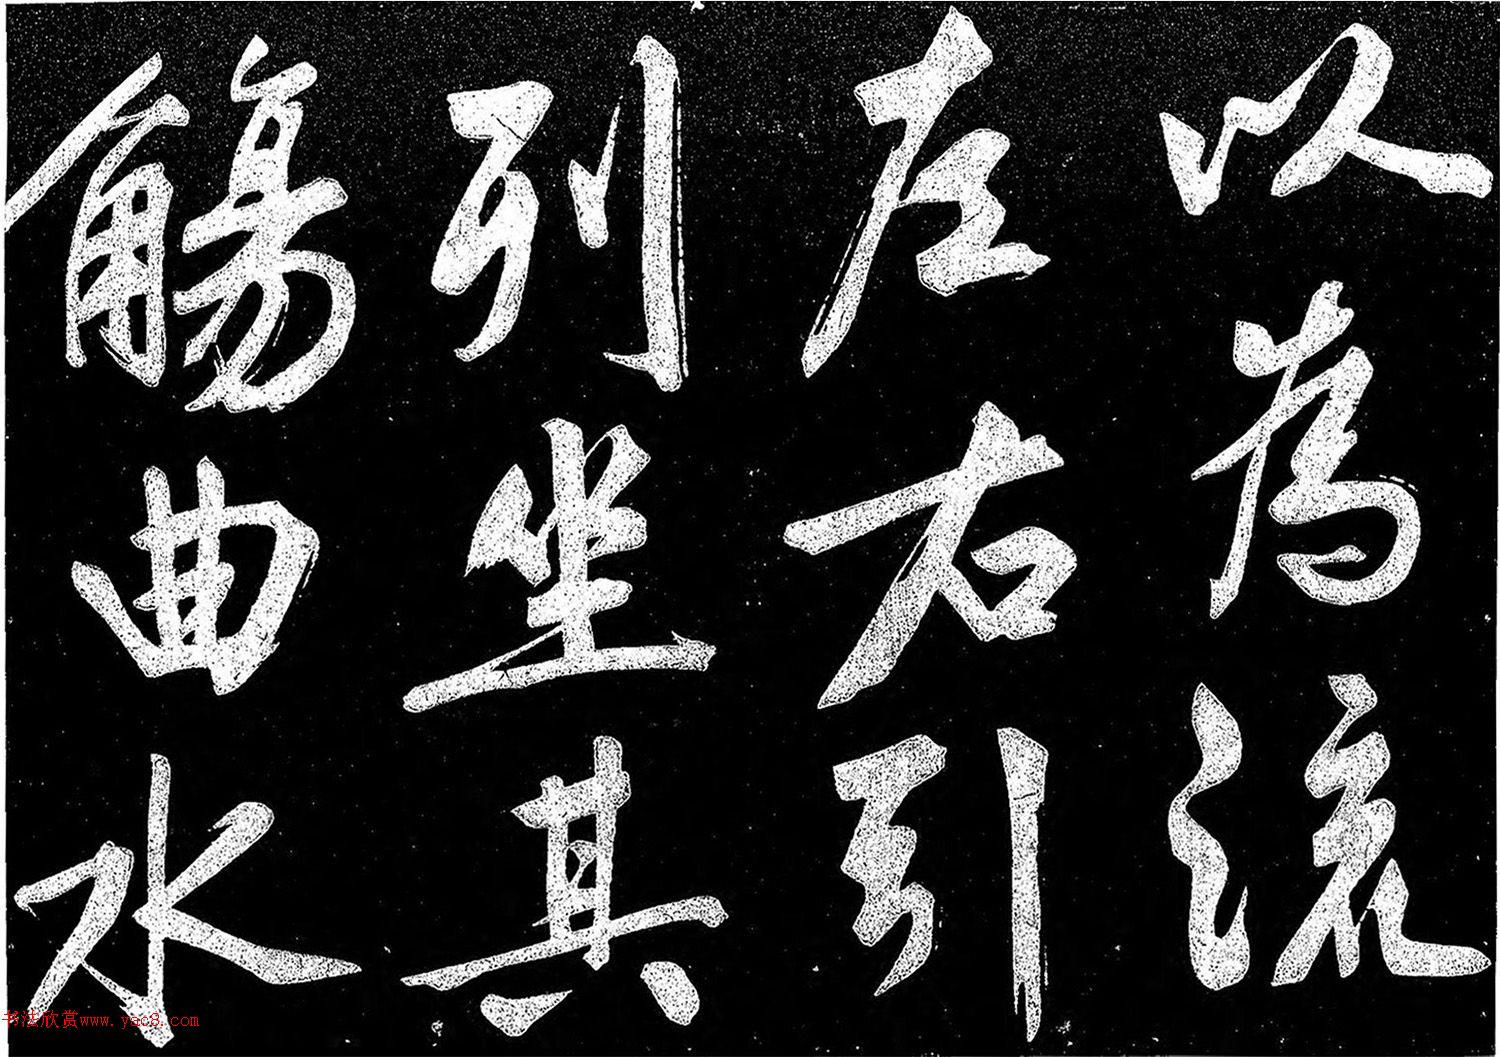 以為流
左右引
列坐其
觴曲水
书法欣赏www.yac8.com